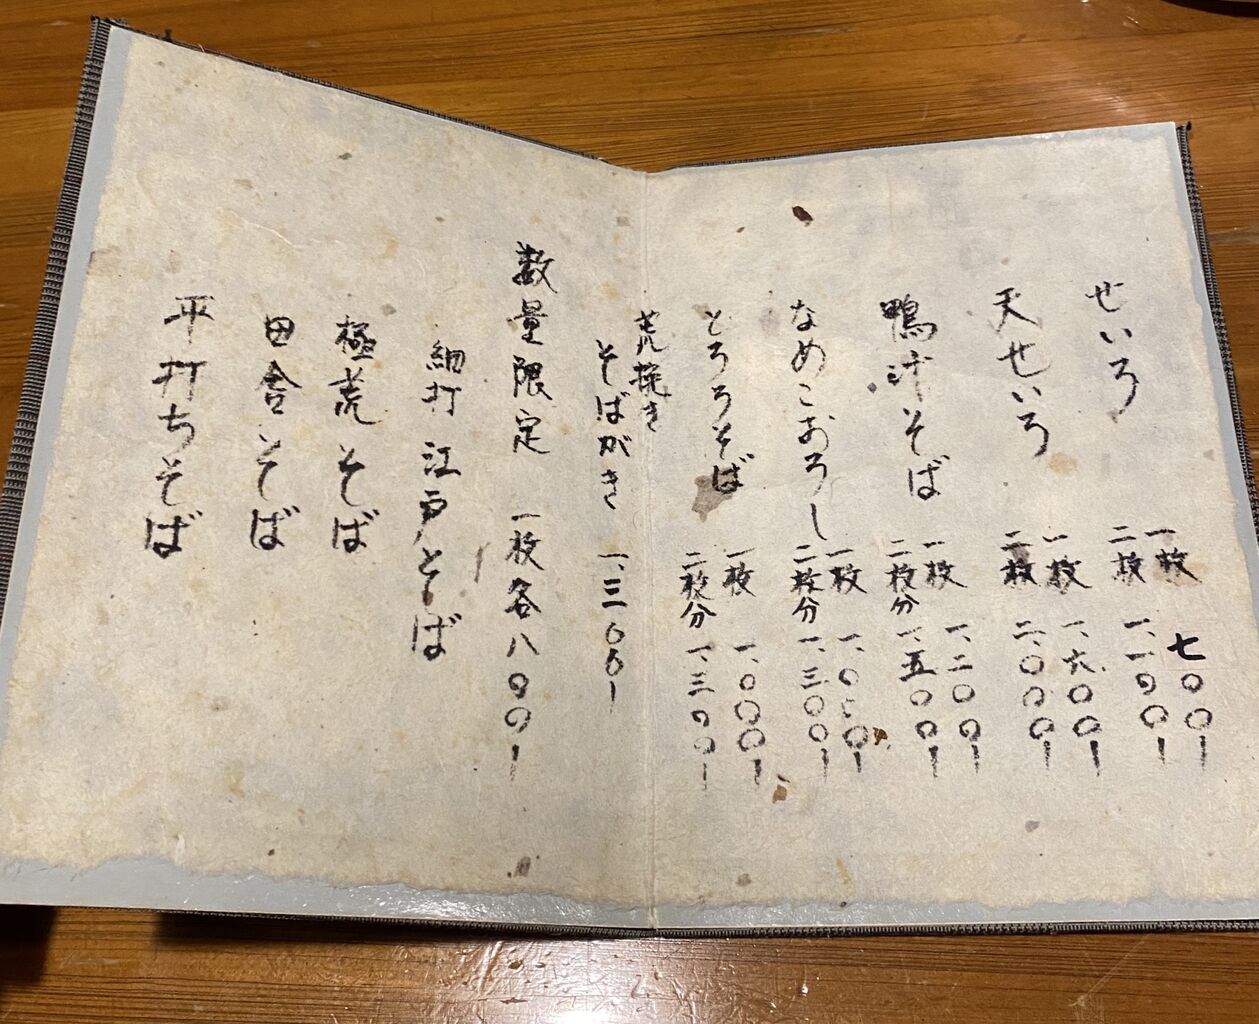 せいろ
一枚 七〇〇ー
二枚 一、一〇〇ー
天せいろ
一枚 一、六〇〇ー
二枚 二、〇〇〇ー
鴨汁そば
一枚 一、二〇〇ー
二枚分 一、五〇〇ー
なめこおろし
一枚 一、〇〇〇ー
二枚分 一、三〇〇ー
とろろそば
一枚 一、〇〇〇ー
二枚分 一、三〇〇ー
荒挽き
そばがき 一、三〇〇ー
数量限定 一枚各八〇〇ー
細打 江戸そば
極荒そば
田舎そば
平打ちそば